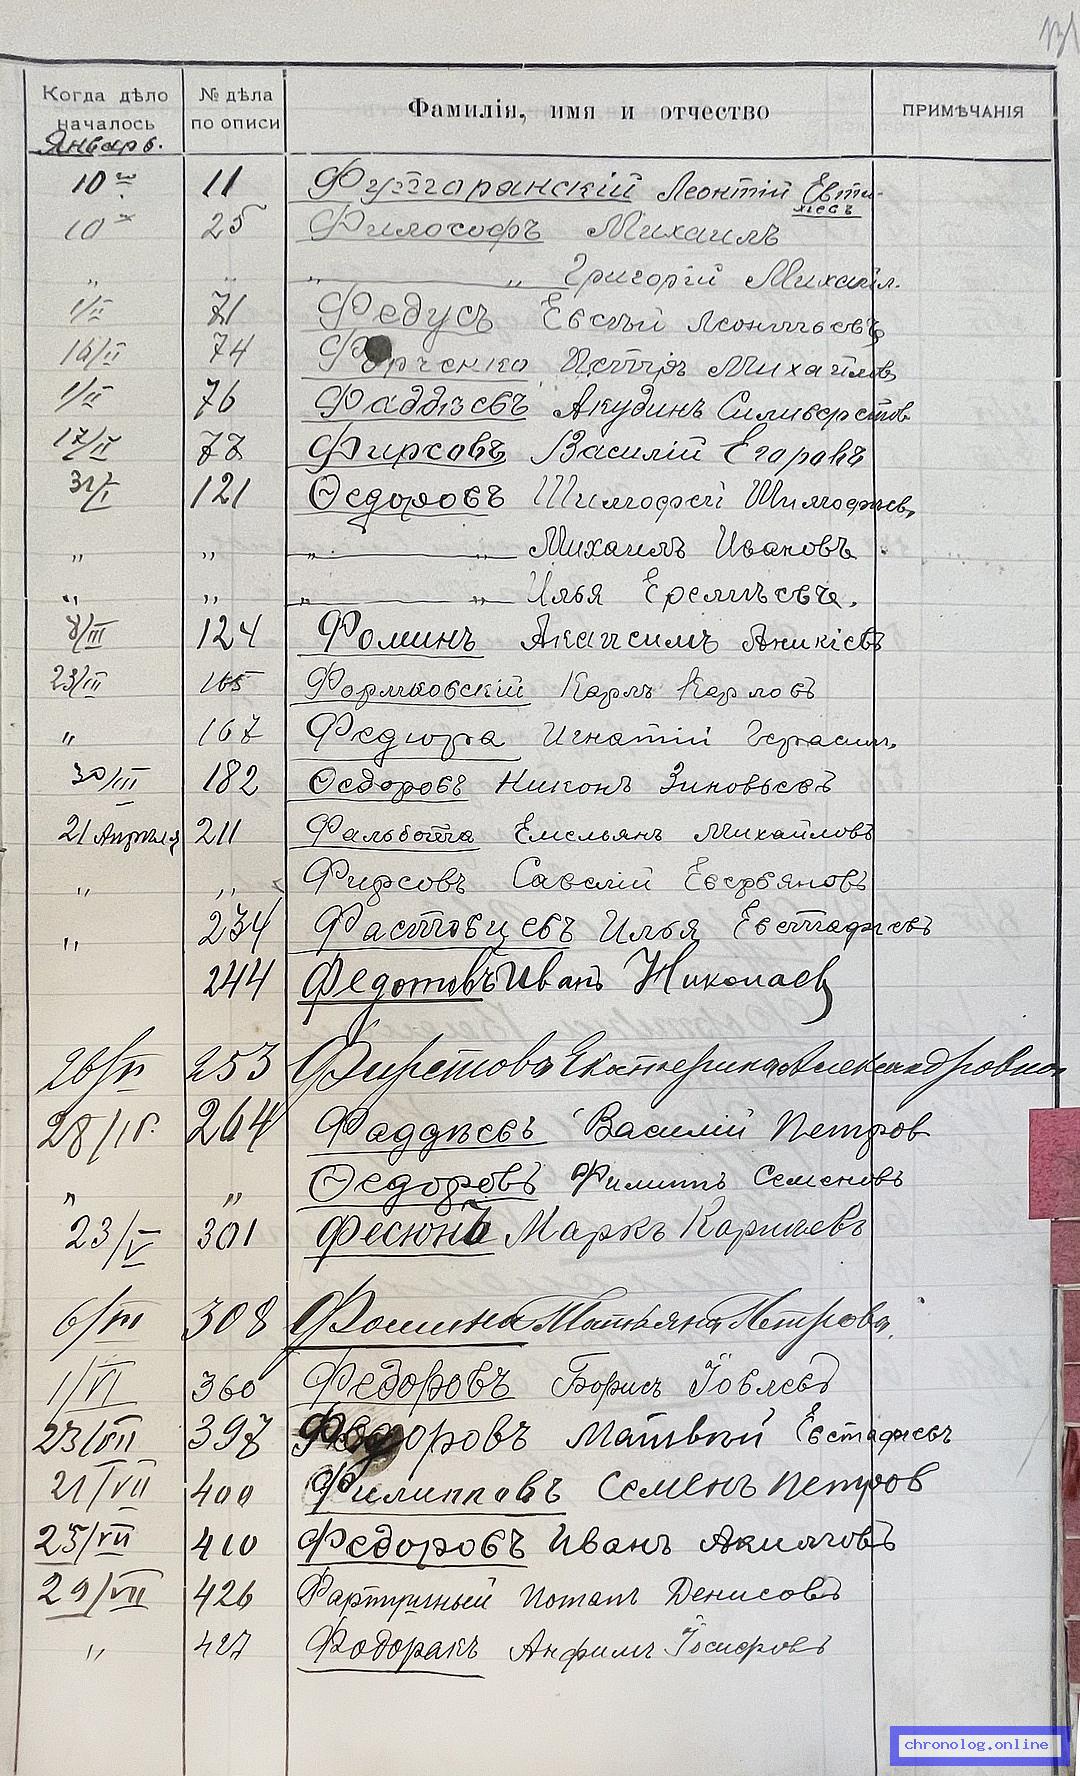 131
Когда дѣло началось № дѣла по описи Фамилія, имя и отчество ПРИМѢЧАНІЯ
Январь.
10 11 Леонтій Евти-
хіевъ
10 25 Философъ Михаилъ
„ „ „ „ Григорій Михайл.
1/II 71 Федусъ Евсѣй
16/II 74 Петръ Михайлов
1/II 76 Фаддѣевъ Акудинъ Сильверстов
17/II 77 Фирсовъ Василій Егоровъ
31/I 121 Ѳедоровъ Тимофей Тимофѣев.
„ „ „ „ Михаилъ Ивановъ
„ „ „ „ Илья Еремѣевъ.
8/III 124 Фоминъ Аникіевъ
23/III 165 Карлъ Карловъ
„ 167 Федюра Игнатій Герасим.
30/III 182 Ѳедоровъ Никонъ Зиновьевъ
21 Апрѣля 211 Фальбота Емельянъ Михайловъ
„ „ Фирсовъ Савелій
„ 234 Фастовцевъ Илья Евстафіевъ
244 Федотовъ Иванъ Николаев
26/VI 253 Екатерина Александровна
28/IV. 264 Фаддѣевъ Василій Петров
„ „ Ѳедоровъ Филиппъ Семеновъ
23/V 301 Фесюнъ Маркъ
6/III 308 Фомина Татьяна Петрова.
1/VI 360 Федоровъ Борисъ Іовлевъ
23/VII 397 Федоровъ Матвѣй Евстафіевъ
21/VII 400 Филипповъ Семенъ Петров
25/VII 410 Федоровъ Иванъ Акимовъ
29/VII 426 Потапъ Денисовъ
„ 427 Федоракъ Анфимъ Іосифовъ
chronolog.online